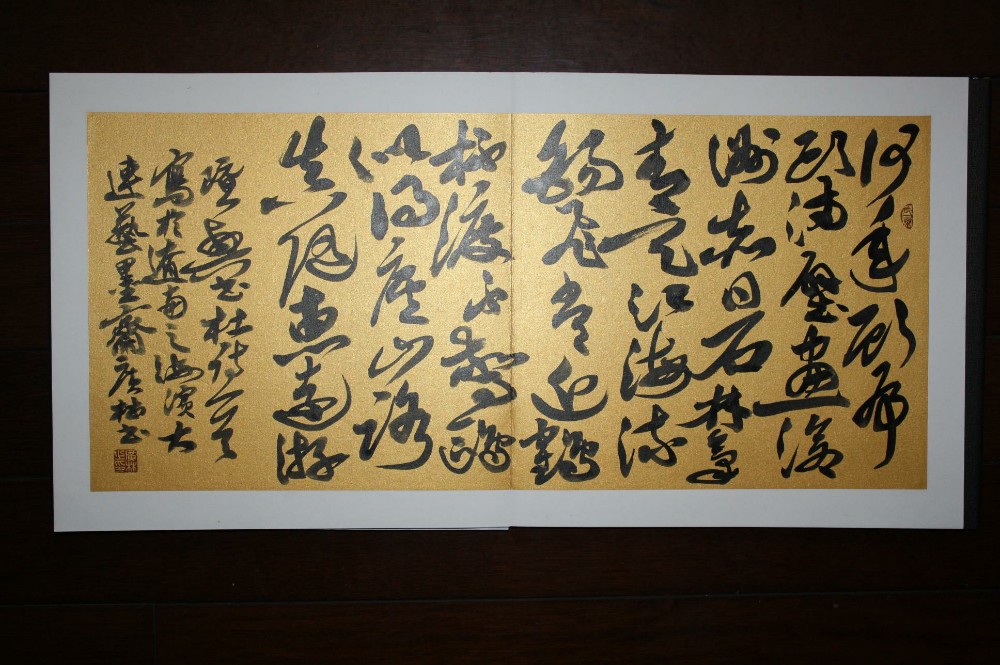 何年顧虎
頭滿壁畫滄
洲赤日石林氣
青天江海流
錫飛常近鶴
杯渡不驚鷗
似得廬山路
真隨惠遠游
書杜詩一首
寫於遼南之海濱大
連藝墨齋書